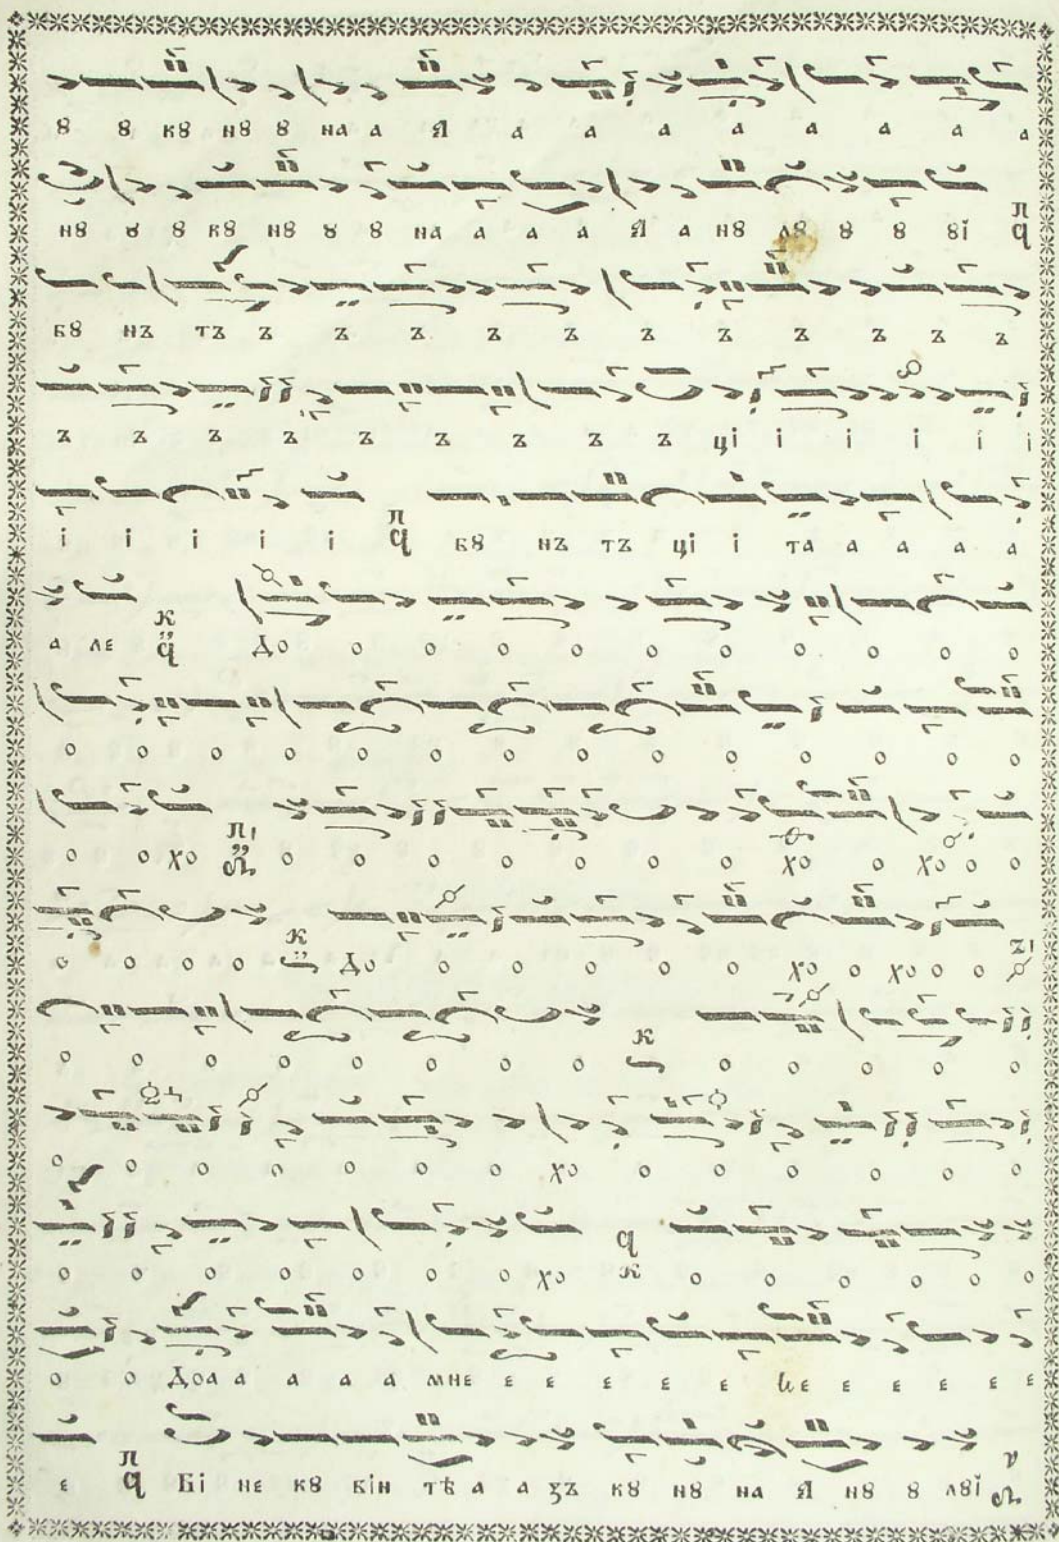 ȣ ȣ кȣ нȣ ȣ на а Ꙗ а а а а а а а а
нȣ ȣ ȣ кȣ нȣ ȣ ȣ на а а а Ꙗ а нȣ лȣ ȣ ȣ ȣї п҃ q
бȣ нъ тъ ъ ъ ъ ъ ъ ъ ъ ъ ъ ъ ъ
ъ ъ ъ ъ ъ ъ ъ ъ ъ ці і і і і і
і і і і і п q бȣ нъ тъ ці і та а а а а
а ле к q До о о о о о о о о о о
о о о о о о о о о о о о о о
о о хо п о о о о о о о хо о хо о о
о о о о к До о о о о о хо о хо о о z
о о о о о о о о к о о о о о
о о о о о о о хо о о о о о о
о о о о о о о хо q к о о о о о о
о о Доа а а а а мне е е е е е Це е е е е е
е п q Бі не кȣ він тѣ а а ꙁъ кȣ нȣ на Ꙗ нȣ ȣ лȣї